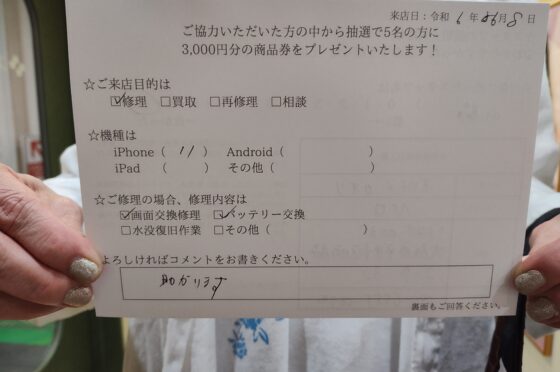 来店日：令和 6 年 月 8 日
ご協力いただいた方の中から抽選で5名の方に
3,000円分の商品券をプレゼントいたします！
☆ご来店目的は
☑修理 □買取 □再修理 □相談
☆機種は
iPhone（ 11 ） Android（ ）
iPad （ ） その他（ ）
☆ご修理の場合、修理内容は
☑画面交換修理 ☑バッテリー交換
□水没復旧作業 □その他（ ）
よろしければコメントをお書きください。
助かります
裏面もご回答ください。